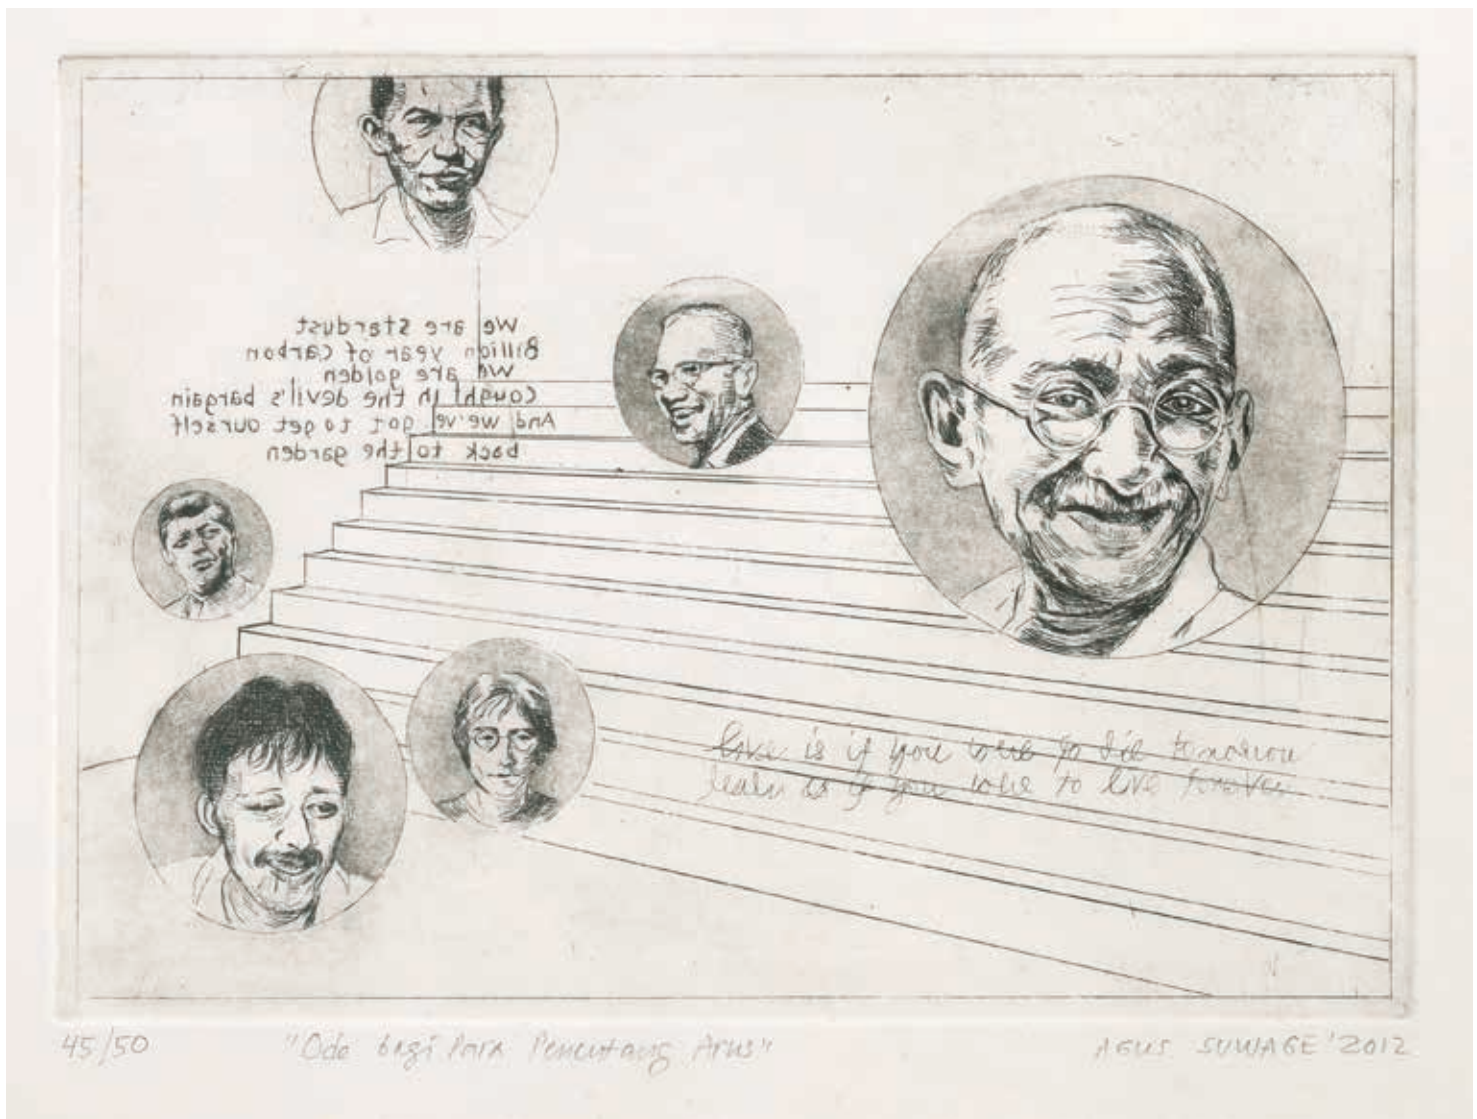 We are stardust
Billion year of Carbon
We are golden
Cought in the devil's bargain
And we've got to get ourself
back to the garden
is if you were to die tomorrow
learn as if you were to live forever
45/50
"Ode bagi Para Penentang Arus"
AGUS SUWAGE '2012